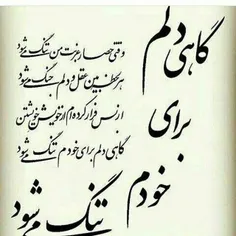 گاهی دلم
برای
خودم
تنگ می شود
وقتی حصار غربت من تنگ می شود
هر لحظه بین عقل و دلم جنگ می شود
از بس فرار کرده ام از خویشتن خویشتن
گاهی دلم برای خودم تنگ می شود